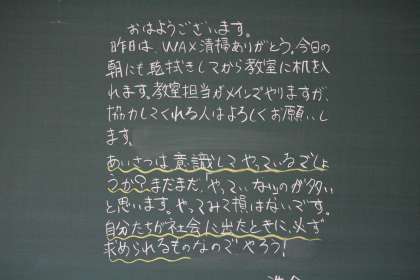 おはようございます。
昨日は、WAX清掃ありがとう。今日の
朝にも乾拭きしてから教室に机を入
れます。教室担当がメインでやりますが、
協力してくれる人はよろしくお願いし
ます。
あいさつは意識してやっているでしょ
うか？まだまだ、やっていない人が多い
と思います。やってみて損はないです。
自分たちが社会に出たときに、必ず
求められるものなのでやろう！